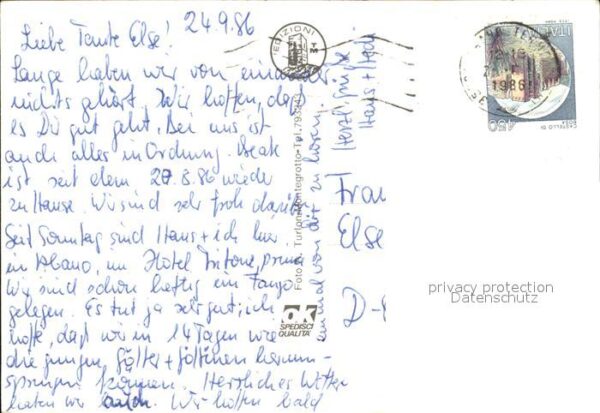 24.9.86
Liebe Tante Else!
Lange haben wir von einander
nichts gehört. Wir hoffen, daß
es Dir gut geht. Bei uns ist
auch alles in Ordnung. Beate
ist seit dem 20.8.86 wieder
zu Hause. Wir sind sehr froh darüber.
Seit Sonntag sind Hans + ich hier
in Abano, im Hotel Tritone, prima
Wir sind schon heftig im Fango
gelegen. Es tut ja sehr gut; ich
hoffe, daß wir in 14 Tagen wie
die jungen Götter + Göttinen herum-
springen können. Herrliches Wetter
haben wir auch. Wir hoffen bald
einmal von dir zu hören.
Herzl. Grüße
Hans +
EDIZIONI
TM
Foto A. Turlon-Montegrotto-Tel.
ok
SPEDISCI
QUALITÀ
Frau
Else
D-
ITALIA
CASTELLO DI
ROSA
450
1986
privacy protection
Datenschutz